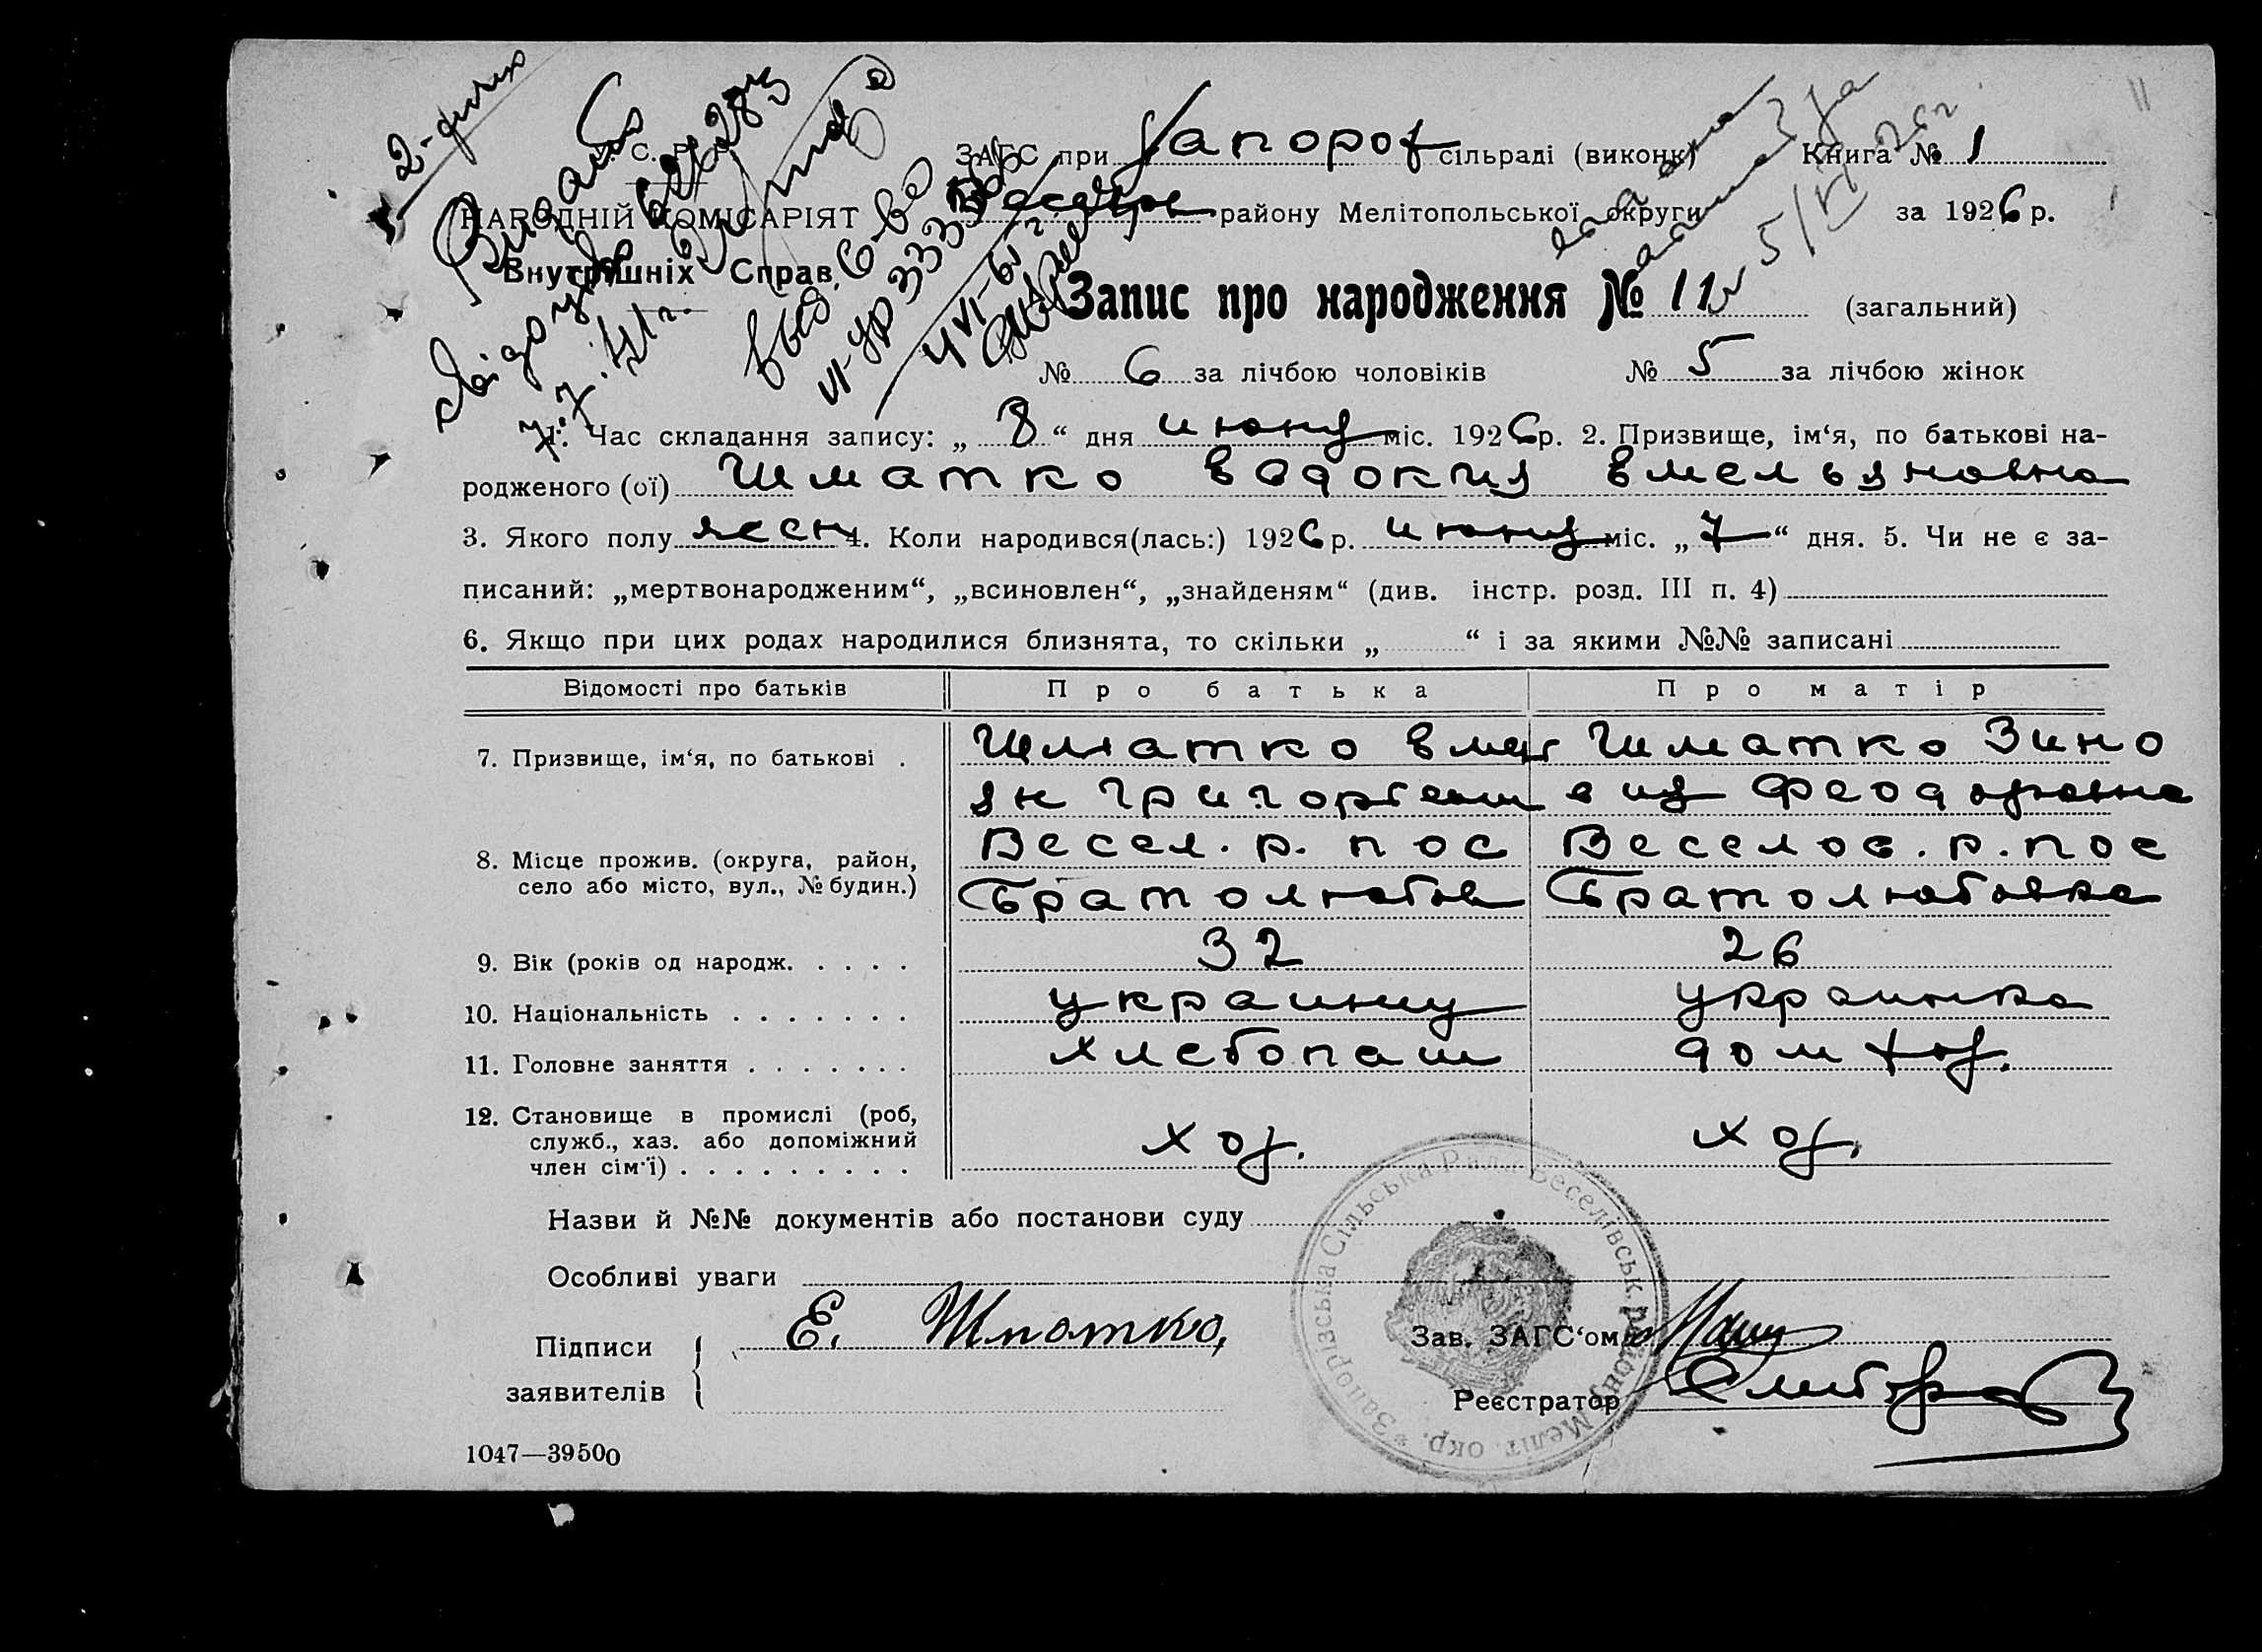 2-
У. С. Р. Р.
НАРОДНІЙ КОМІСАРІЯТ
Внутрішніх Справ.
ЗАГС при Запорож сільраді (виконк) Книга № 1
району Мелітопольської округи за 1926 р.
Запис про народження № 11 (загальний)
№ 6 за лічбою чоловіків № 5 за лічбою жінок
1. Час складання запису: „ 8 “ дня июня міс. 1926 р. 2. Призвище, ім‘я, по батькові на-
родженого (ої) Шматко Евдокия Емельяновна
3. Якого полу жен 4. Коли народився(лась:) 1926 р. июня міс. „ 7 “ дня. 5. Чи не є за-
писаний: „мертвонародженим“, „всиновлен“, „знайденям“ (див. інстр. розд. III п. 4)
6. Якщо при цих родах народилися близнята, то скільки „ “ і за якими №№ записані
Відомості про батьків Про батька Про матір
7. Призвище, ім‘я, по батькові . Шматко Емел Шматко Зино
ян Григорьевич вия Феодоровна
8. Місце прожив. (округа, район, Весел. р. пос Веселов. р. пос
село або місто, вул., № будин.) Братолюбов Братолюбовка
9. Вік (років од народж. . . . . 32 26
10. Національність . . . . . . . украинец украинка
11. Головне заняття . . . . . . . хлебопаш дом хоз.
12. Становище в промислі (роб, хоз. хоз.
служб., хаз. або допоміжний
член сім‘ї) . . . . . . . . .
Назви й №№ документів або постанови суду
Особливі уваги
Підписи заявителів Е. Шматко,
Зав. ЗАГС‘ом
Реєстратор
* Запорізська Сільська Рада Веселівськ. Району Меліт. окр.
1047—39500